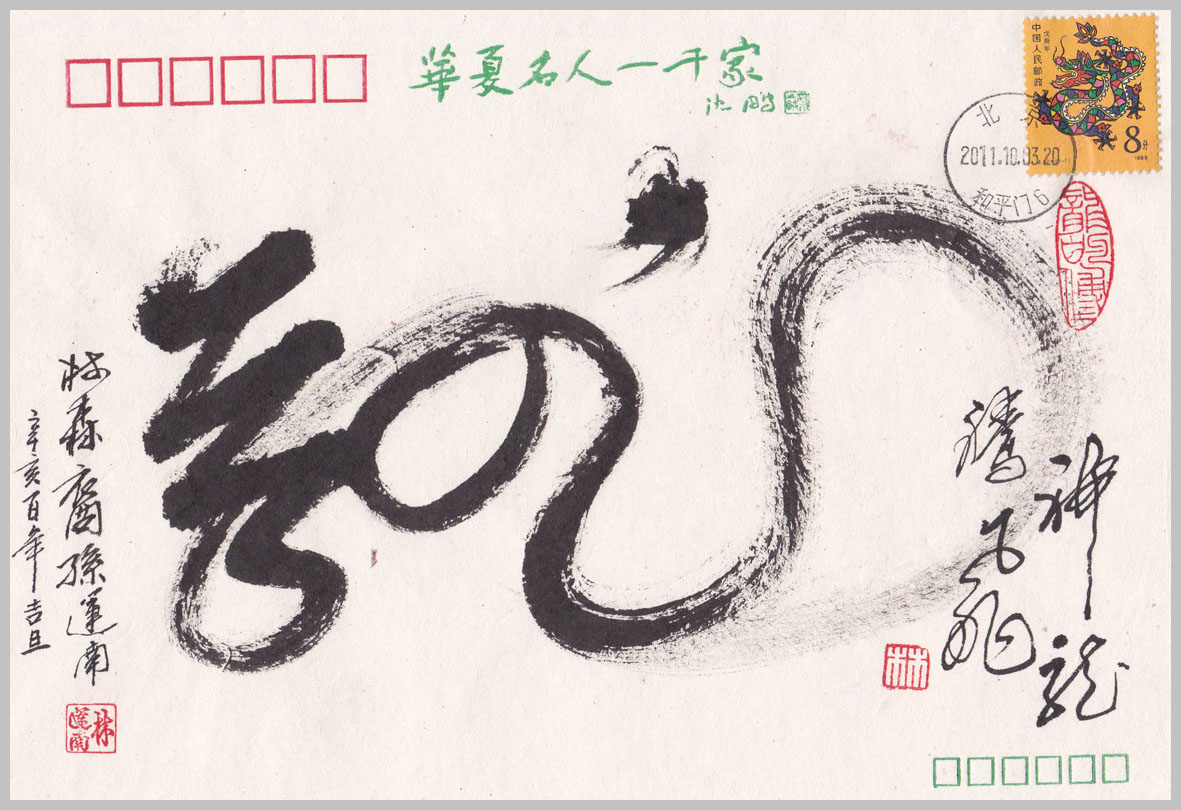 華夏名人一千家
沈鹏
戊辰年
中国人民邮政
8分
1988
北京
2011.10.03.20
和平门6
龍的傳人
龍
神龍
騰飛
林
林森裔孫運南
辛亥百年吉旦